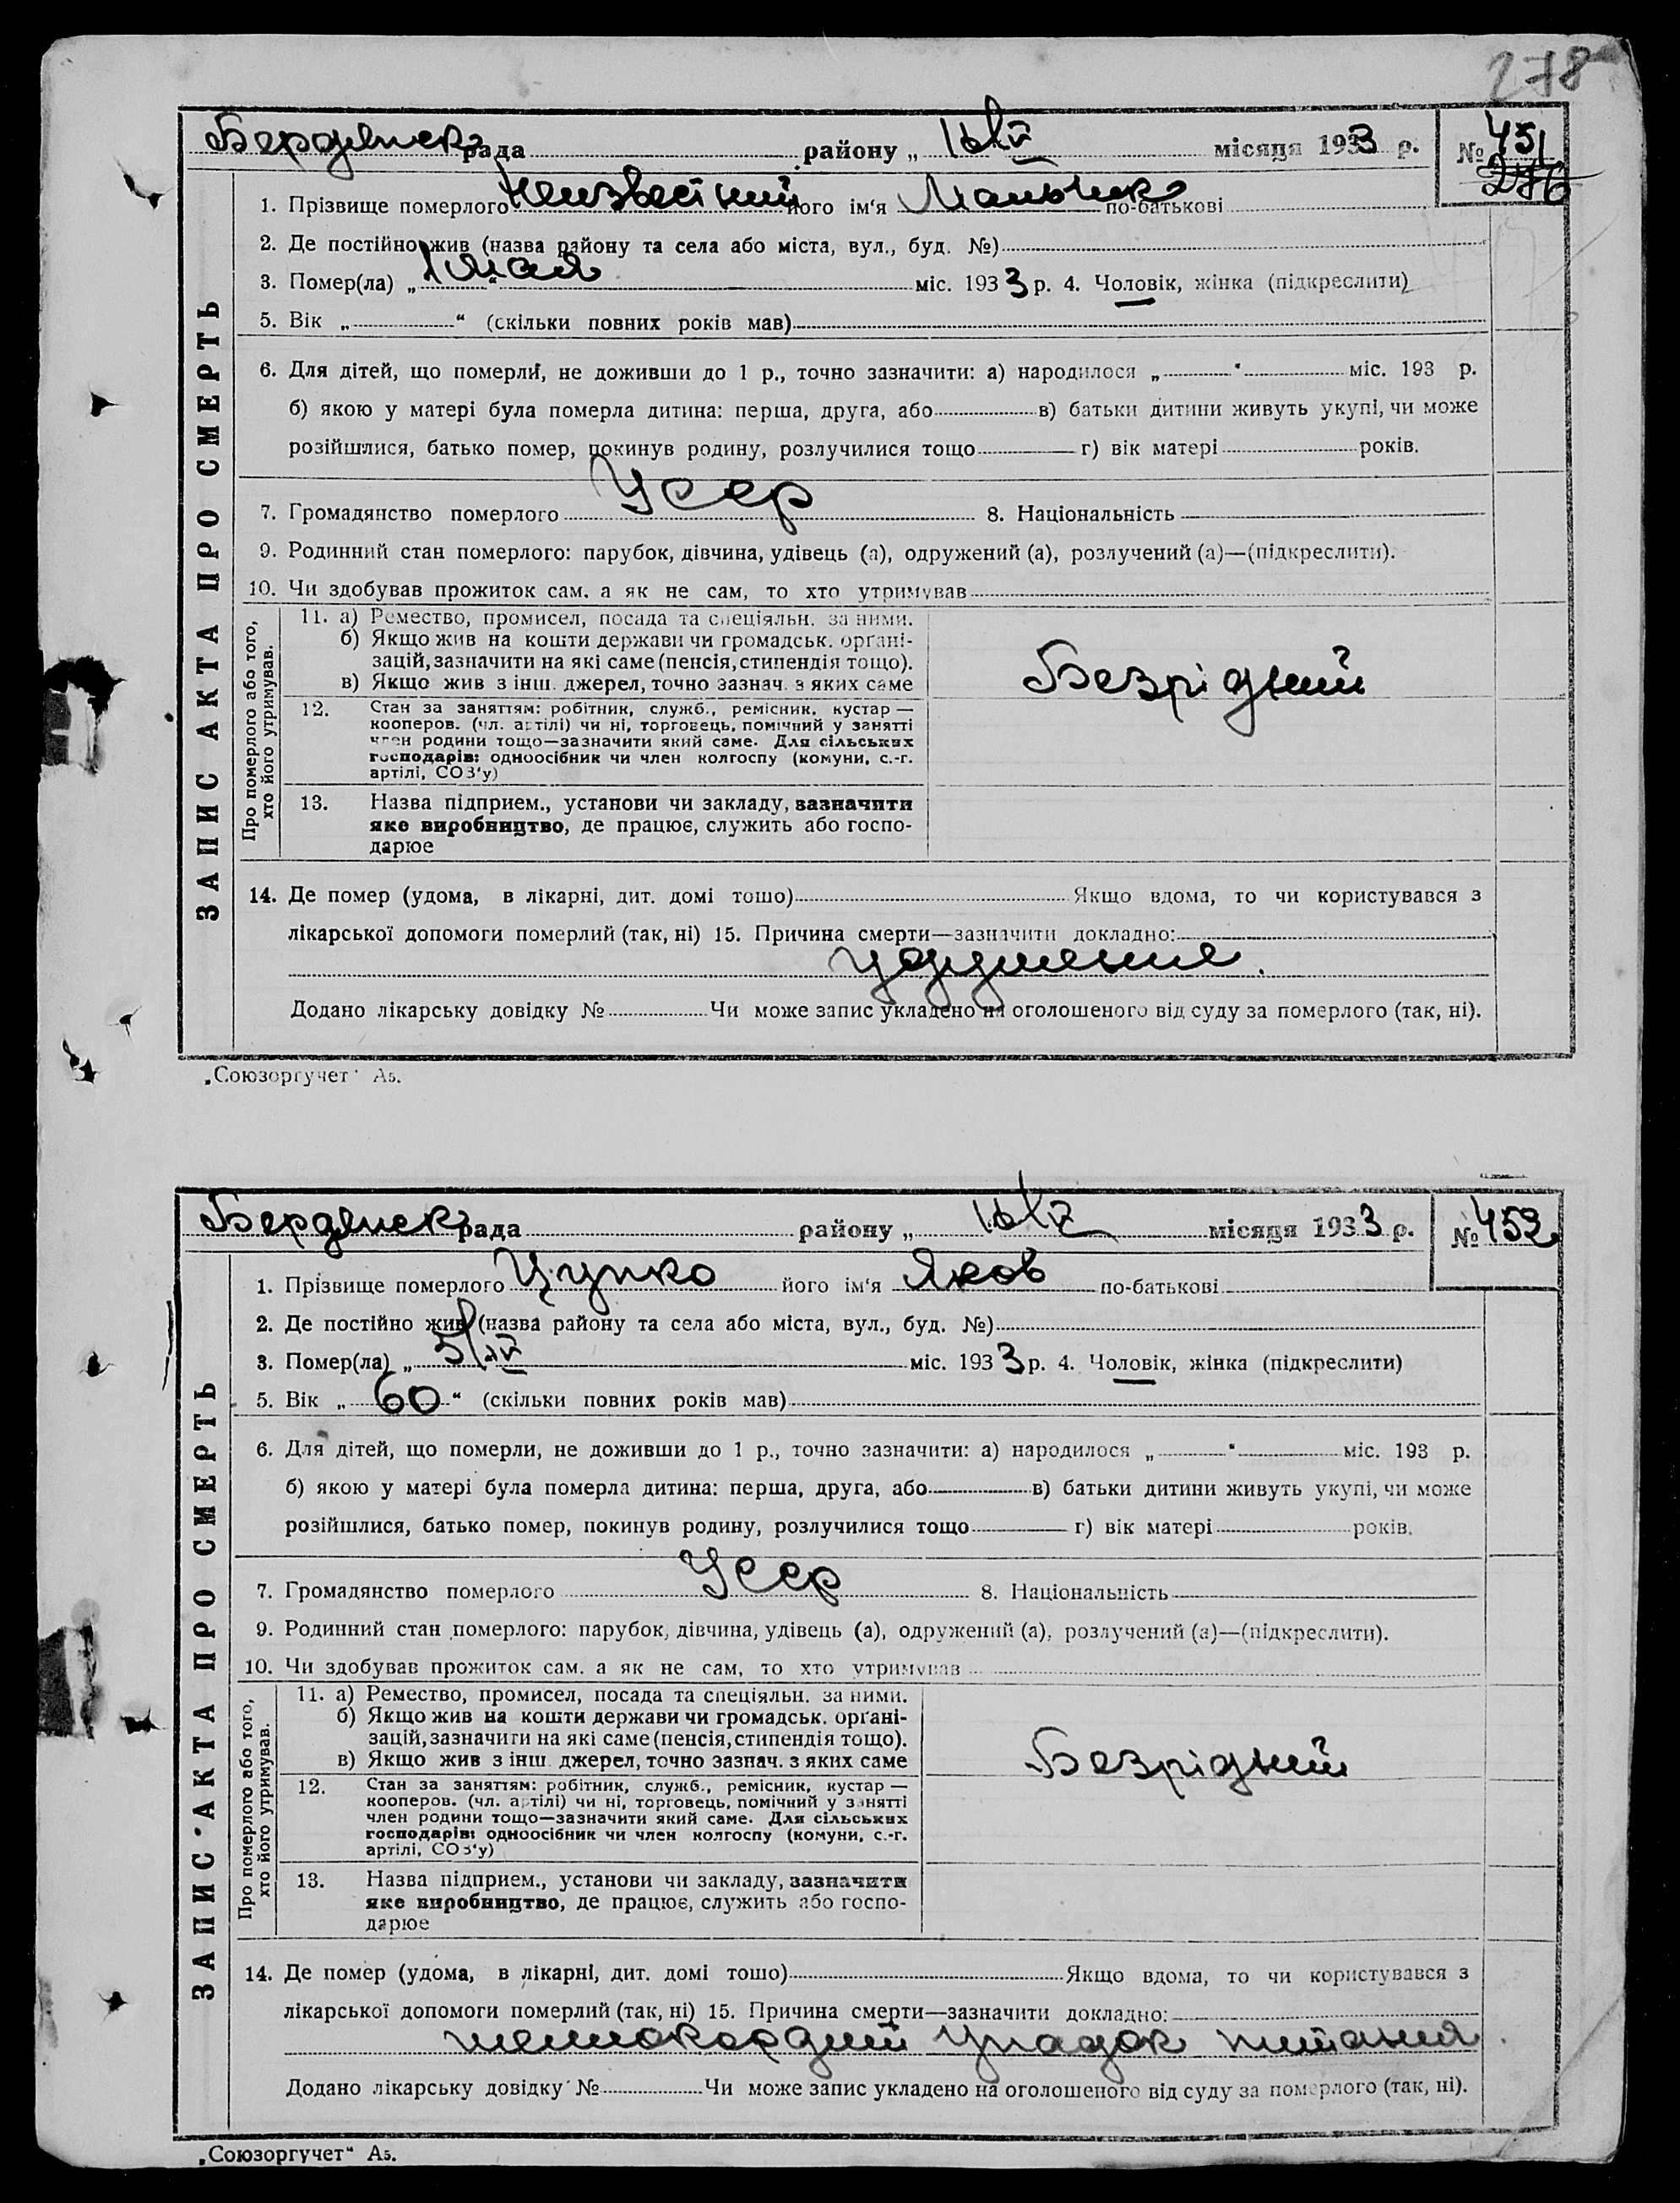 278
Бердянська рада района „ 16/V місяця 1933 р. № 451
276
1. Прізвище померлого Неизвестний його ім'я Мальчик по-батькові
2. Де постійно жив (назва району та села або міста, вул., буд. №)
3. Помер(ла) „ 1 мая “ міс. 1933 р. 4. Чоловік, жінка (підкреслити)
5. Вік „ “ (скільки повних років мав)
6. Для дітей, що померли, не доживши до 1 р., точно зазначити: а) народилося „ “ міс. 193 р.
б) якою у матері була померла дитина: перша, друга, або в) батьки дитини живуть укупі, чи може
розійшлися, батько помер, покинув родину, розлучилися тощо г) вік матері років.
7. Громадянство померлого Усср 8. Національність
9. Родинний стан померлого: парубок, дівчина, удівець (а), одружений (а), розлучений (а)—(підкреслити).
10. Чи здобував прожиток сам. а як не сам, то хто утримував
ЗАПИС АКТА ПРО СМЕРТЬ
Про померлого або того,
хто його утримував.
11. а) Ремество, промисел, посада та спеціяльн. за ними.
б) Якщо жив на кошти держави чи громадськ. орґані-
зацій, зазначити на які саме (пенсія, стипендія тощо).
в) Якщо жив з інш. джерел, точно зазнач. з яких саме
Безрідний
12. Стан за заняттям: робітник, служб., ремісник, кустар —
кооперов. (чл. артілі) чи ні, торговець, помічний у занятті
член родини тощо—зазначити який саме. Для сільських
господарів: одноосібник чи член колгоспу (комуни, с.-г.
артілі, СОЗ'у)
13. Назва підприєм., установи чи закладу, зазначити
яке виробництво, де працює, служить або госпо-
дарює
14. Де помер (удома, в лікарні, дит. домі тощо) Якщо вдома, то чи користувався з
лікарської допомоги померлий (так, ні) 15. Причина смерти—зазначити докладно:
удушение.
Додано лікарську довідку № Чи може запис укладено на оголошеного від суду за померлого (так, ні).
„Союзоргучет“ А5.
Бердянська рада району „ 16/V місяця 1933 р. № 452
1. Прізвище померлого Цупко його ім'я Яков по-батькові
2. Де постійно жив (назва району та села або міста, вул., буд. №)
3. Помер(ла) „ 5/IV міс. 1933 р. 4. Чоловік, жінка (підкреслити)
5. Вік „ 60 “ (скільки повних років мав)
6. Для дітей, що померли, не доживши до 1 р., точно зазначити: а) народилося „ “ міс. 193 р.
б) якою у матері була померла дитина: перша, друга, або в) батьки дитини живуть укупі, чи може
розійшлися, батько помер, покинув родину, розлучилися тощо г) вік матері років.
7. Громадянство померлого Усср 8. Національність
9. Родинний стан померлого: парубок, дівчина, удівець (а), одружений (а), розлучений (а)—(підкреслити).
10. Чи здобував прожиток сам. а як не сам, то хто утримував
ЗАПИС АКТА ПРО СМЕРТЬ
Про померлого або того,
хто його утримував.
11. а) Ремество, промисел, посада та спеціяльн. за ними.
б) Якщо жив на кошти держави чи громадськ. орґані-
зацій, зазначити на які саме (пенсія, стипендія тощо).
в) Якщо жив з інш. джерел, точно зазнач. з яких саме
Безрідний
12. Стан за заняттям: робітник, служб., ремісник, кустар —
кооперов. (чл. артілі) чи ні, торговець, помічний у занятті
член родини тощо—зазначити який саме. Для сільських
господарів: одноосібник чи член колгоспу (комуни, с.-г.
артілі, СОЗ'у)
13. Назва підприєм., установи чи закладу, зазначити
яке виробництво, де працює, служить або госпо-
дарює
14. Де помер (удома, в лікарні, дит. домі тощо) Якщо вдома, то чи користувався з
лікарської допомоги померлий (так, ні) 15. Причина смерти—зазначити докладно:
упадок питания
Додано лікарську довідку № Чи може запис укладено на оголошеного від суду за померлого (так, ні).
„Союзоргучет“ А5.